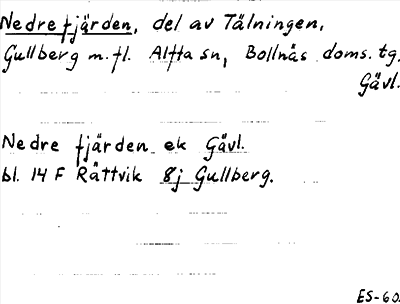 Nedre fjärden, del av Tälningen,
Gullberg m.fl. Alfta sn, Bollnäs doms. tg.
Gävl.
Nedre fjärden ek Gävl.
bl. 14 F Rättvik 8j Gullberg.
ES-60.